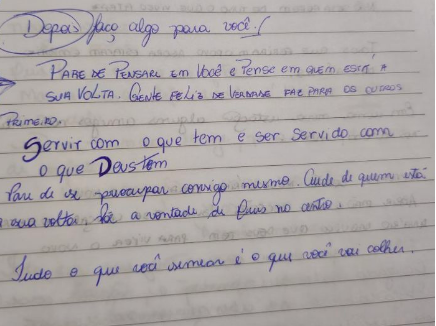 Depois faço algo para você!
PARE DE PENSAR EM VOCÊ E PENSE EM QUEM ESTÁ A
SUA VOLTA. GENTE FELIZ DE VERDADE FAZ PARA OS OUTROS
PRIMEIRO.
Servir com o que tem e ser servido com
o que Deus tem
Pare de se preocupar consigo mesmo. Cuide de quem está
a sua volta a vontade de Deus no centro.
Tudo o que você semear é o que você vai colher.